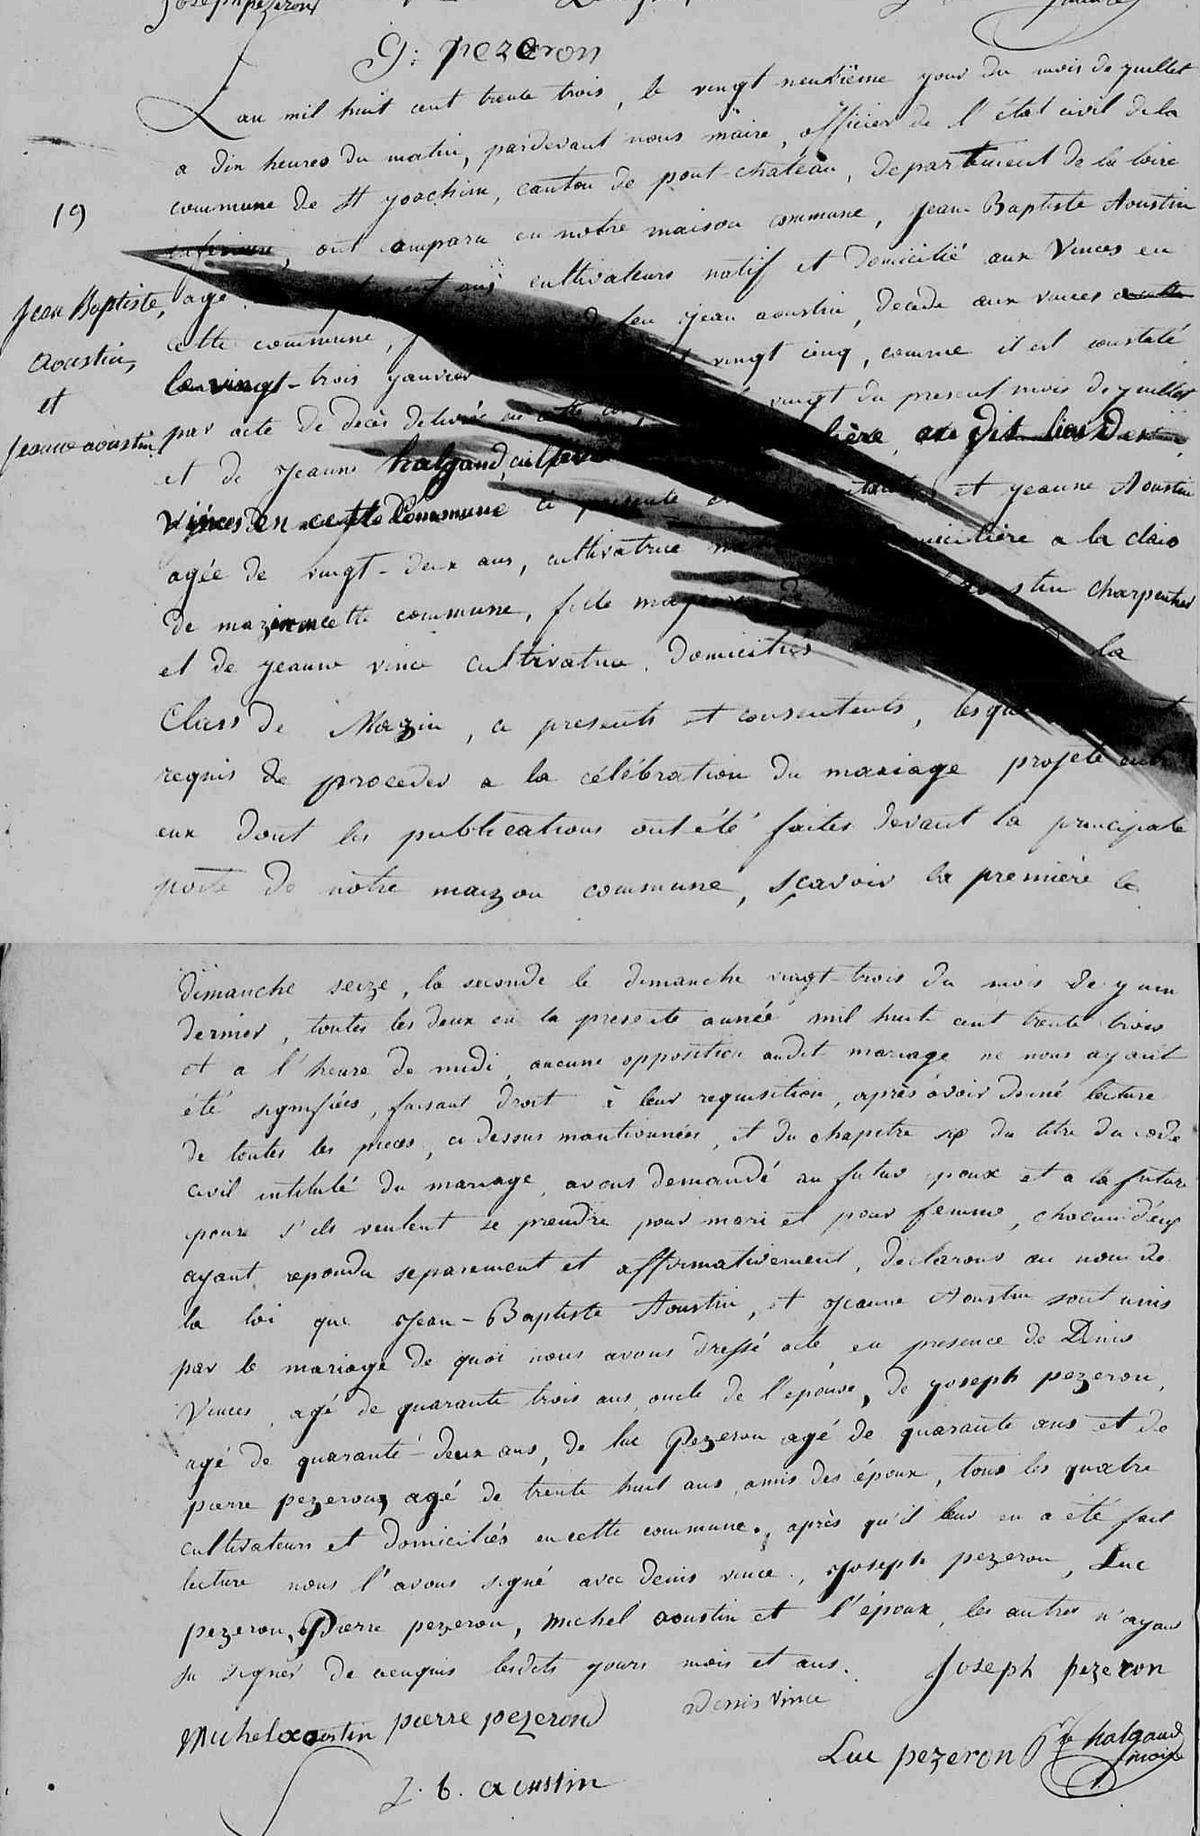 Joseph pezeron
G: pezeron
19
Jean Baptiste,
Aoustin,
et
Jeanne aoustin
Lan mil huit cent trente trois, le vingt neuvième jour du mois de juillet
a dix heures du matin, pardevant nous maire, officier de l'état civil de la
commune de St joachim, canton de pont-château, departement de la loire
inferieure, ont comparu en notre maison commune, jean Baptiste Aoustin
agé ans cultivateurs natif et domicilié aux Vinces en
cette commune, de feu jean aoustin, décédé aux vinces
le vingt-trois janvier vingt cinq, comme il est constaté
par acte de decès delivrée vingt du present mois de juillet
et de jeanne halgand, au dit lieu des
vinces en cette Commune ce presente et jeanne Aoustin
agée de vingt-deux ans, cultivatrice a la clais
de mazin en cette commune, fille majeure charpentier
et de jeanne vince cultivatrice. Domiciliés la
Class de Mazin, ce presents et consentents, lesquels
requis de proceder a la célébration du mariage projeté entre
eux dont les publications ont été faites devant la principale
porte de notre maizon commune, sçavoir la première le
dimanche seize, la seconde le dimanche vingt-trois du mois de juin
dernier, toutes les deux en la presente année mil huit cent trente trois
et a l'heure de midi, aucune opposition audit mariage ne nous ayant
été signifiées, faisant droit à leur requisition, après avoir donné lecture
de toutes les pieces, ci dessus mantionnées, et du chapitre six du titre du code
civil intitulé du mariage, avons demandé au futur epoux et a la future
epouse s'ils veulent se prendre pour mari et pour femme, chacun d'eux
ayant repondu separement et affirmativement, declarons au nom de
la loi que Jean-Baptiste Aoustin, et Jeanne Aoustin sont unis
par le mariage de quoi nous avons dressé acte, en presence de Dinis
Vinces, agé de quarante trois ans, oncle de l'epouse, de joseph pezeron,
agé de quarante-deux ans, de luc Pezeron agé de quarante ans et de
pierre pezeron, agé de trente huit ans, amis des époux, tous les quatre
cultivateurs et domiciliés en cette commune, après qu'il leur en a été fait
lecture nous l'avons signé avec denis vince, Joseph pezeron, Luc
pezeron, Pierre pezeron, michel aoustin et l'époux, les autres n'ayant
su signer de ce enquis lesdits jours mois et ans.
Joseph pezeron
denis vince
Michel aoustin pierre pezeron
Luc pezeron
halgand
maire
J. b. aoustin